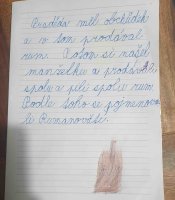 Pradědа měl obchůdek
a v tom prodával
rum. Potom si našel
manželku a prodávali
spolu a pili spolu rum.
Podle toho se pojmenova-
li Rumanovští.